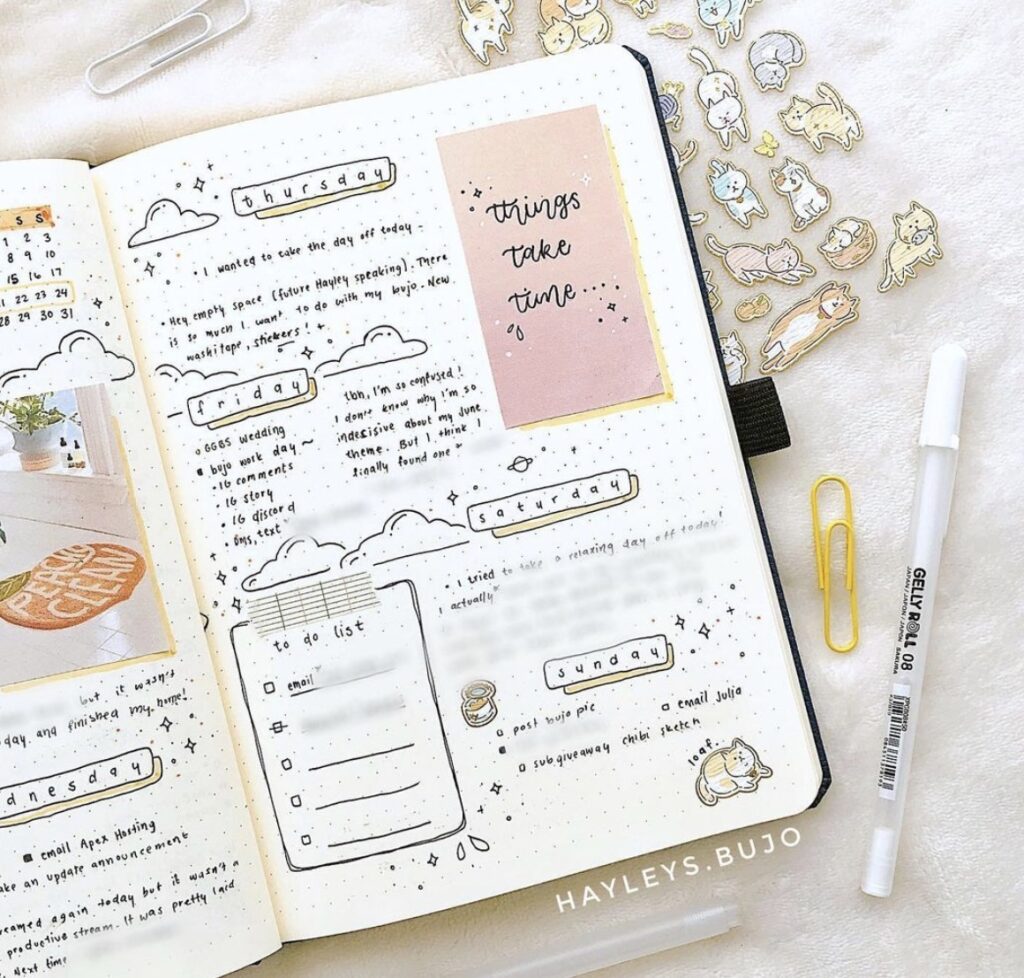 S S
1 2 3
8 9 10
15 16 17
22 23 24
28 29 30 31
PEACHY
CLEAN
but it wasn't
and finished my home!
email Apex Hosting
an update announcement
again today but it wasn't a
productive stream. It was pretty laid
Next time
thursday
• I wanted to take the day off today -
• Hey empty space (future Hayley speaking). There
is so much I want to do with my bujo. New
washi tape, stickers!
friday
GGBS wedding
bujo work day ~
• IG comments
• IG story
• IG discord
• DMs, text
tbh, I'm so confused!
I don't know why I'm so
indecisive about my June
theme. But I think I
finally found one ~
things
take
time...
saturday
• I tried to take a relaxing day off today!
I actually
to do list
email
sunday
post bujo pic
email Julia
sub giveaway chibi sketch
loaf..
HAYLEYS.BUJO
GELLY ROLL 08
JAPAN / JAPON / JAPÓN SAKURA